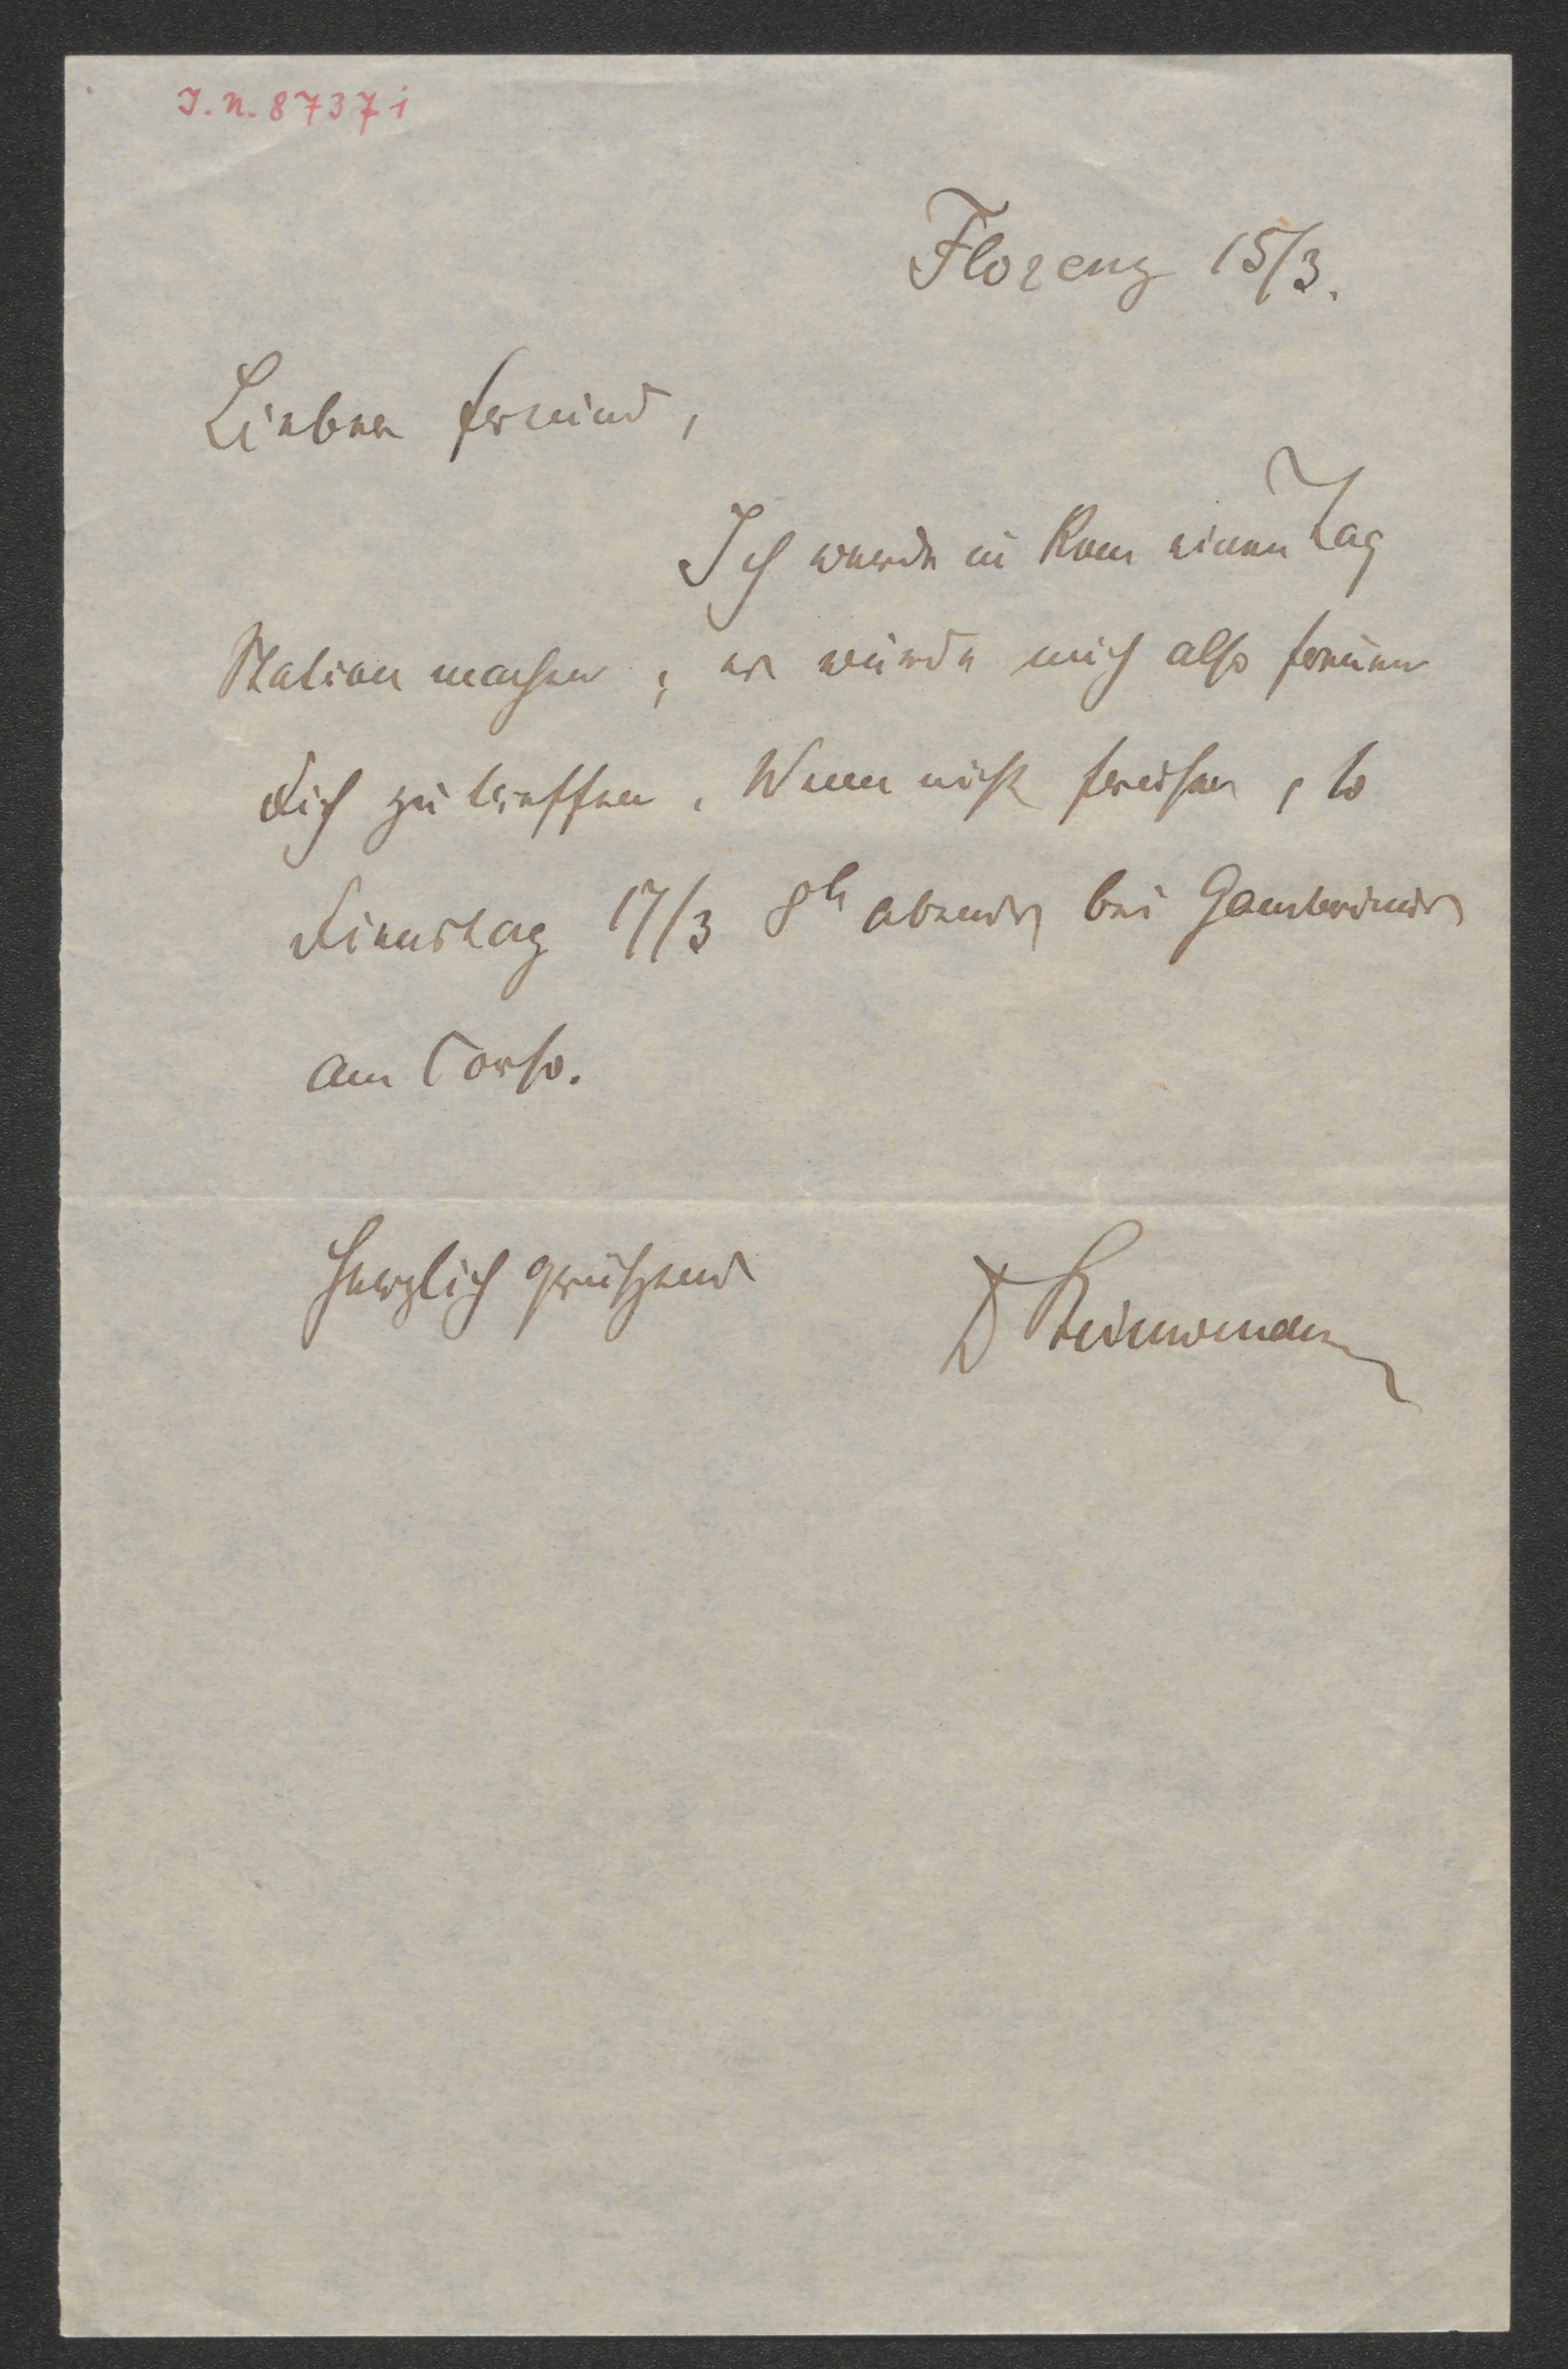 I. N. 8737 i
Florenz 15/3.
Lieber Freund,
Ich werde in Rom einen Tag
Station machen; es würde mich also freuen
Dich zu treffen. Wenn nicht früher, so
Dienstag 17/3 8h abends bei Gambrinus
am Corso.
Herzlich grüßend
D